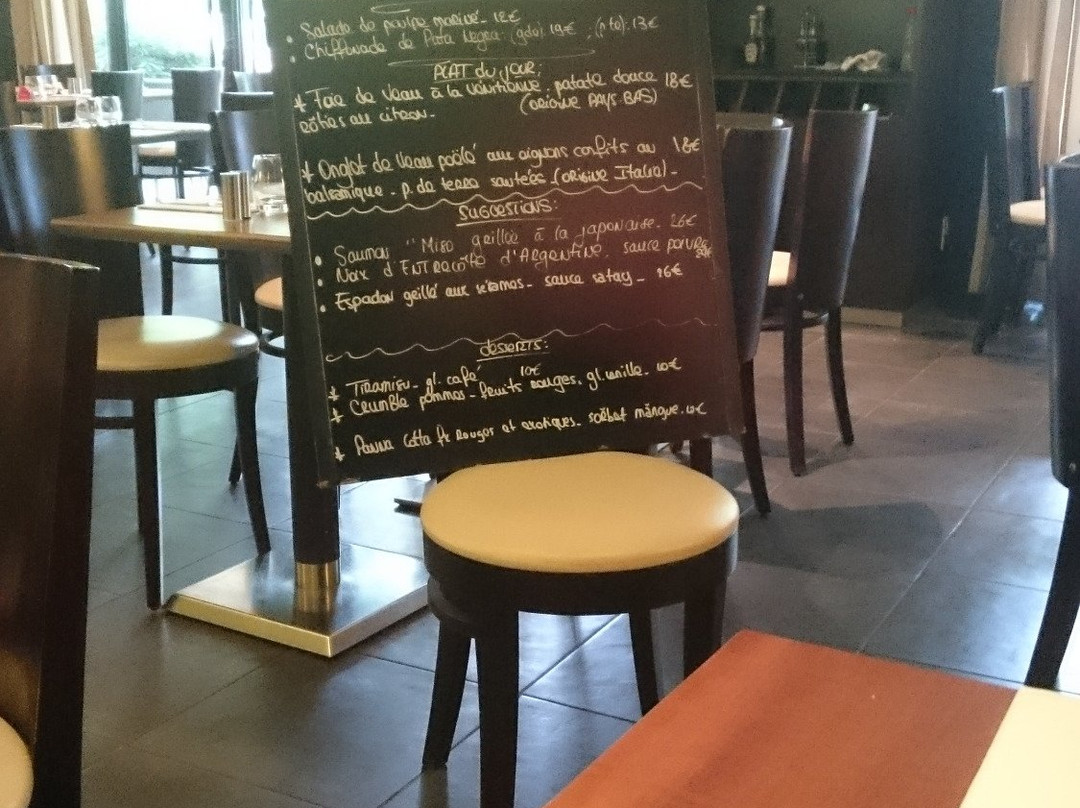 • Salade de poulpe mariné - 12€
• Chiffonade de Pata Negra (gde). 19€. (pte). 13€
PLAT du JOUR:
* Foie de veau à la vénitienne. patate douce 18€
rôties au citron. (ORIGINE PAYS BAS)
* Onglet de veau poêlé aux oignons confits au 18€
balsamique - p. de terre sautées (origine Italie) -
SUGGESTIONS:
• Saumon "Miso grillée à la japonaise. 26€
• Noix d'ENTRECÔTE d'ARGENTINE. sauce poivre
• Espadon grillé aux sésames - sauce satay - 26€
desserts:
* Tiramisu - gl. café 10€
* Crumble pommes - fruits rouges, gl. vanille. 10€
* Panna Cotta Fr Rouges et exotiques. sorbet mangue. 10€